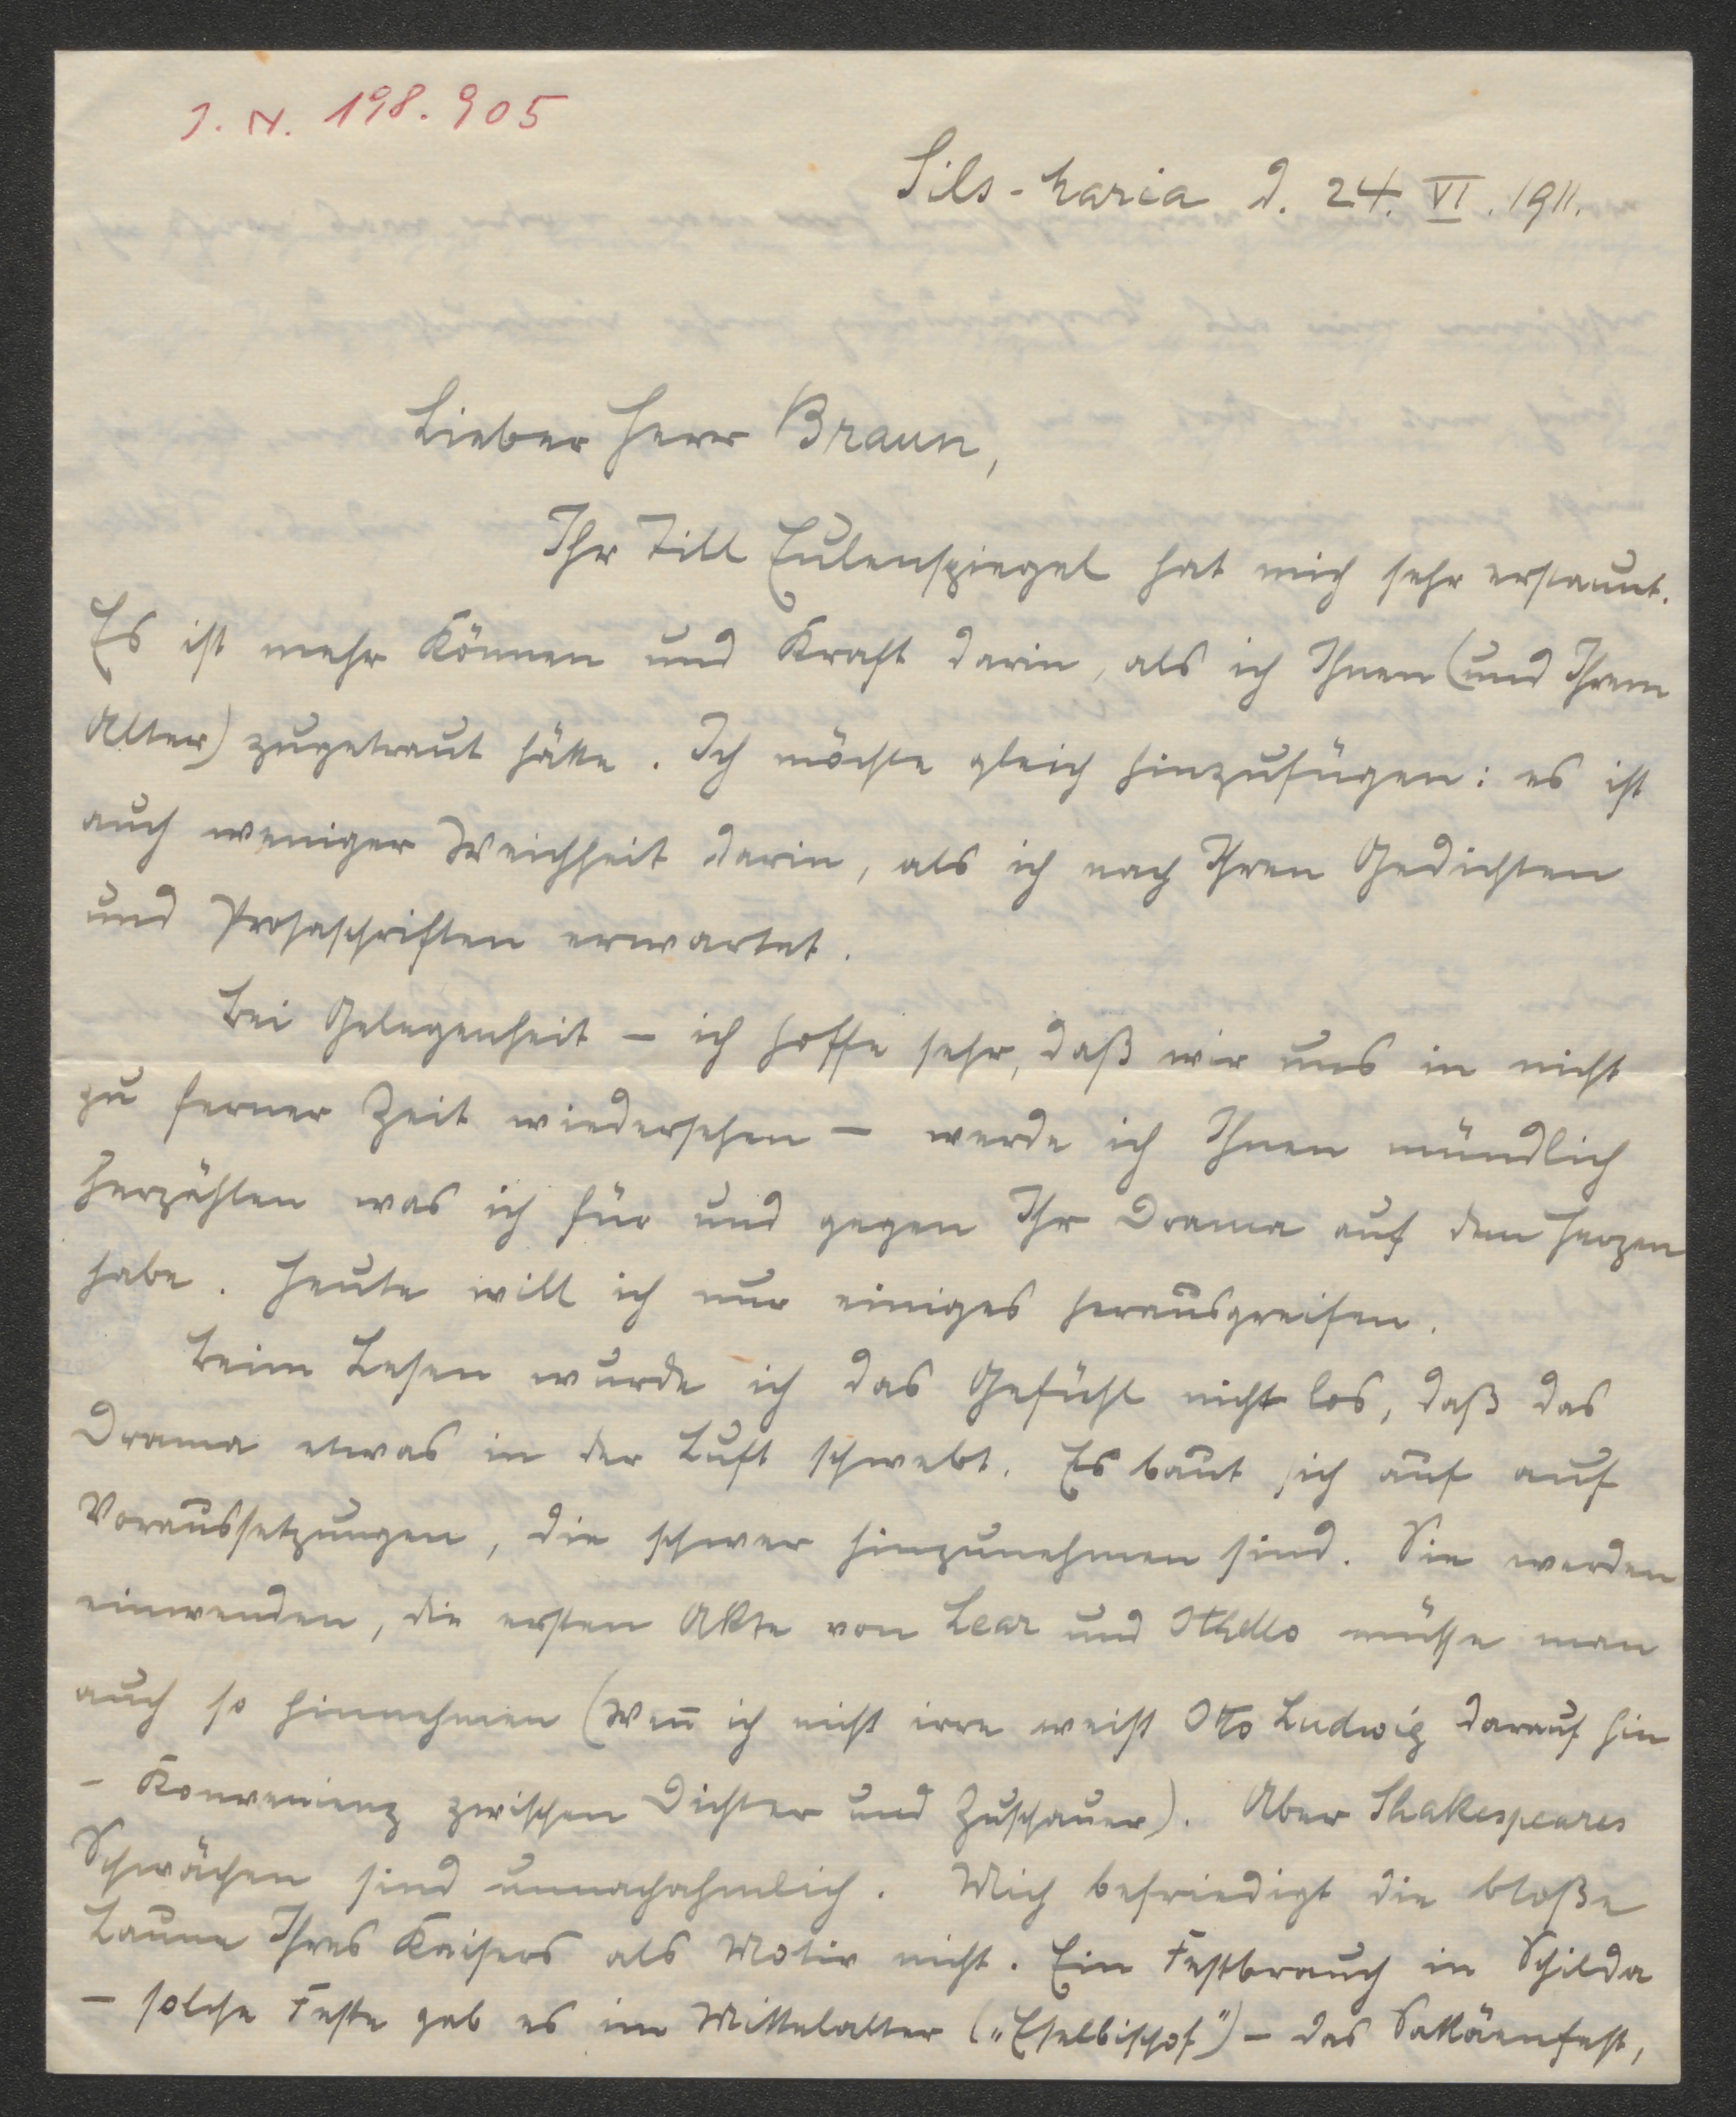 J. N. 198.905
Sils-Maria d. 24. VI. 1911.
Lieber Herr Braun,
Ihr Till Eulenspiegel hat mich sehr erstaunt.
Es ist mehr Können und Kraft darin, als ich Ihnen (und Ihrem
Alter) zugetraut hätte. Ich möchte gleich hinzufügen: es ist
auch weniger Weichheit darin, als ich nach Ihren Gedichten
und Prosaschriften erwartet.
Bei Gelegenheit – ich hoffe sehr, daß wir uns in nicht
zu ferner Zeit wiedersehen – werde ich Ihnen mündlich
herzählen was ich für und gegen Ihr Drama auf dem Herzen
habe. Heute will ich nur einiges herausgreifen.
Beim Lesen wurde ich das Gefühl nicht los, daß das
Drama etwas in der Luft schwebt. Es baut sich auf auf
Voraussetzungen, die schwer hinzunehmen sind. Sie werden
einwenden, die ersten Akte von Lear und Othello müsse man
auch so hinnehmen (Wen̄ ich nicht irre weist Otto Ludwig darauf hin
– Konvenienz zwischen Dichter und Zuschauer). Aber Shakespeares
Schwächen sind unnachahmlich. Mich befriedigt die bloße
Laune Ihres Kaisers als Motiv nicht. Ein Festbrauch in Schilda
– solche Feste gab es im Mittelalter („Eselbischof") – das Sakäenfest,